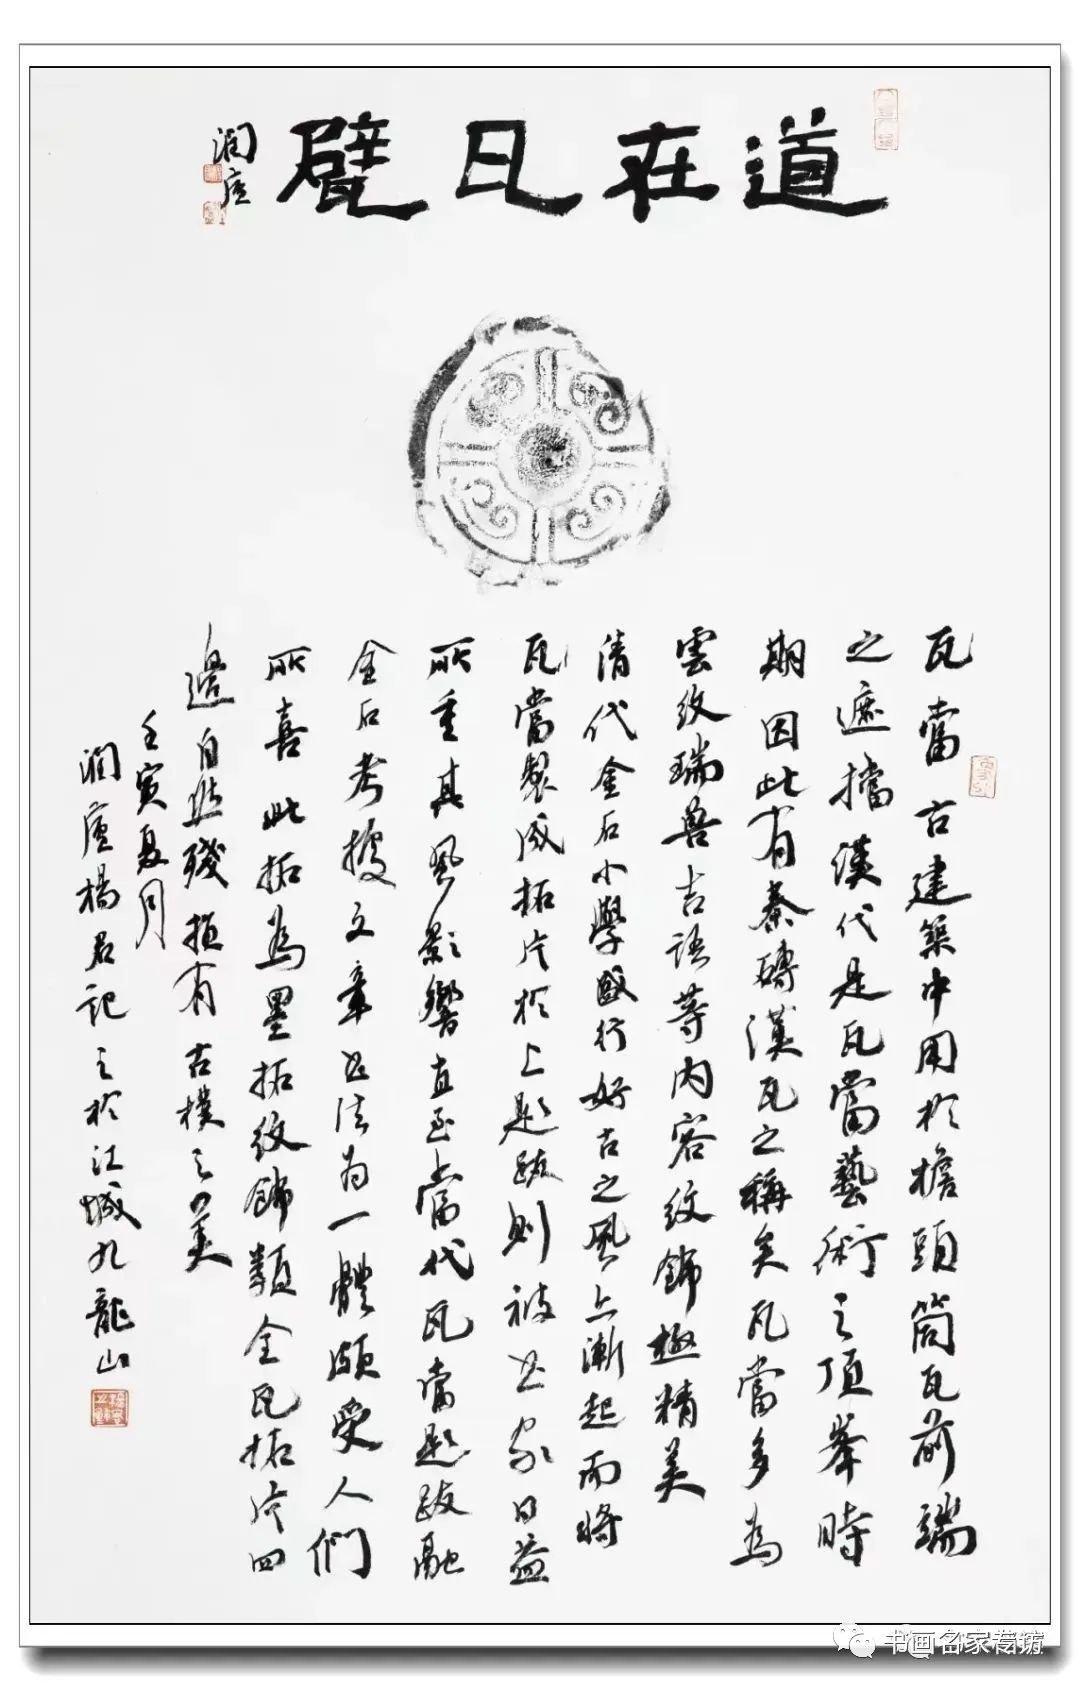 道在瓦甓
澗廬
瓦當古建築中用於檐頭筒瓦前端
之遮擋漢代是瓦當藝術之頂峯時
期因此有秦磚漢瓦之稱矣瓦當多為
雲紋瑞兽吉語等内容紋飾極精美
清代金石小學盛行好古之風亦漸起而將
瓦當製成拓片於上題跋則被书家日益
所重其風影響直至當代瓦當題跋融
金石考據文章书法为一體頗受人們
所喜此拓為墨拓紋飾類全瓦拓片四
邊自然殘損有古樸之美
壬寅夏月
澗廬楊君記之於江城九龍山
书画名家专访